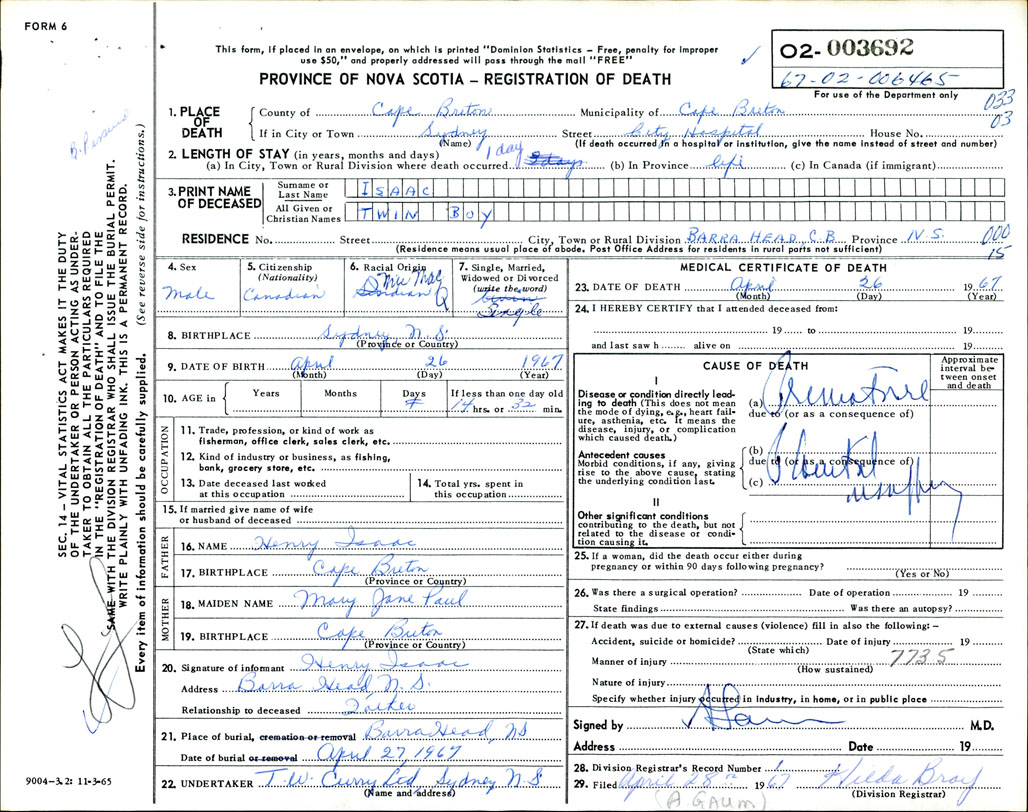 FORM 6
This form, if placed in an envelope, on which is printed "Dominion Statistics – Free, penalty for improper
use $50," and properly addressed will pass through the mail "FREE"
PROVINCE OF NOVA SCOTIA – REGISTRATION OF DEATH
02-003692
67-02-006465
For use of the Department only
033
03
1. PLACE OF DEATH
County of Cape Breton Municipality of Cape Breton
If in City or Town Sydney Street City Hospital House No.
(Name) (If death occurred in a hospital or institution, give the name instead of street and number)
2. LENGTH OF STAY (in years, months and days)
(a) In City, Town or Rural Division where death occurred 1 day (b) In Province life (c) In Canada (if immigrant)
3. PRINT NAME OF DECEASED
Surname or Last Name ISAAC
All Given or Christian Names TWIN BOY
RESIDENCE No. Street City, Town or Rural Division BARRA HEAD C.B Province N.S. 000
15
(Residence means usual place of abode. Post Office Address for residents in rural parts not sufficient)
4. Sex Male
5. Citizenship (Nationality) Canadian
6. Racial Origin Indian
7. Single, Married, Widowed or Divorced (write the word) Single
8. BIRTHPLACE Sydney N.S.
(Province or Country)
9. DATE OF BIRTH April 26 1967
(Month) (Day) (Year)
10. AGE in Years Months Days If less than one day old
14 hrs. or 32 min.
OCCUPATION
11. Trade, profession, or kind of work as
fisherman, office clerk, sales clerk, etc.
12. Kind of industry or business, as fishing,
bank, grocery store, etc.
13. Date deceased last worked
at this occupation
14. Total yrs. spent in
this occupation
15. If married give name of wife
or husband of deceased
FATHER
16. NAME Henry Isaac
17. BIRTHPLACE Cape Breton
(Province or Country)
MOTHER
18. MAIDEN NAME Mary Jane Paul
19. BIRTHPLACE Cape Breton
(Province or Country)
20. Signature of informant Henry Isaac
Address Barra Head N.S.
Relationship to deceased Father
21. Place of burial, cremation or removal Barra Head, NS
Date of burial or removal April 27, 1967
22. UNDERTAKER T.W. Curry Ltd, Sydney N.S
(Name and address)
MEDICAL CERTIFICATE OF DEATH
23. DATE OF DEATH April 26 1967
(Month) (Day) (Year)
24. I HEREBY CERTIFY that I attended deceased from:
19 to 19
and last saw h alive on 19
CAUSE OF DEATH
Approximate interval between onset and death
I
Disease or condition directly leading to death (This does not mean the mode of dying, e.g., heart failure, asthenia, etc. It means the disease, injury, or complication which caused death.)
(a) Premature
due to (or as a consequence of)
Antecedent causes
Morbid conditions, if any, giving rise to the above cause, stating the underlying condition last.
(b)
due to (or as a consequence of)
(c)
II
Other significant conditions
contributing to the death, but not related to the disease or condition causing it.
25. If a woman, did the death occur either during
pregnancy or within 90 days following pregnancy?
(Yes or No)
26. Was there a surgical operation? Date of operation 19
State findings Was there an autopsy?
27. If death was due to external causes (violence) fill in also the following: –
Accident, suicide or homicide? Date of injury 19
(State which)
Manner of injury 7735
(How sustained)
Nature of injury
Specify whether injury occurred in industry, in home, or in public place
Signed by M.D.
Address Date 19
28. Division Registrar's Record No.
29. Filed April 28 1967 Hilda Bray
(A GAUM) (Division Registrar)
SEC. 14 – VITAL STATISTICS ACT MAKES IT THE DUTY
OF THE UNDERTAKER OR PERSON ACTING AS UNDER-
TAKER TO OBTAIN ALL THE PARTICULARS REQUIRED
IN THE "REGISTRATION OF DEATH" AND TO FILE THE
SAME WITH THE DIVISION REGISTRAR WHO SHALL ISSUE THE BURIAL PERMIT.
WRITE PLAINLY WITH UNFADING INK. THIS IS A PERMANENT RECORD.
Every item of information should be carefully supplied. (See reverse side for instructions.)
9004-3.2: 11-3-65